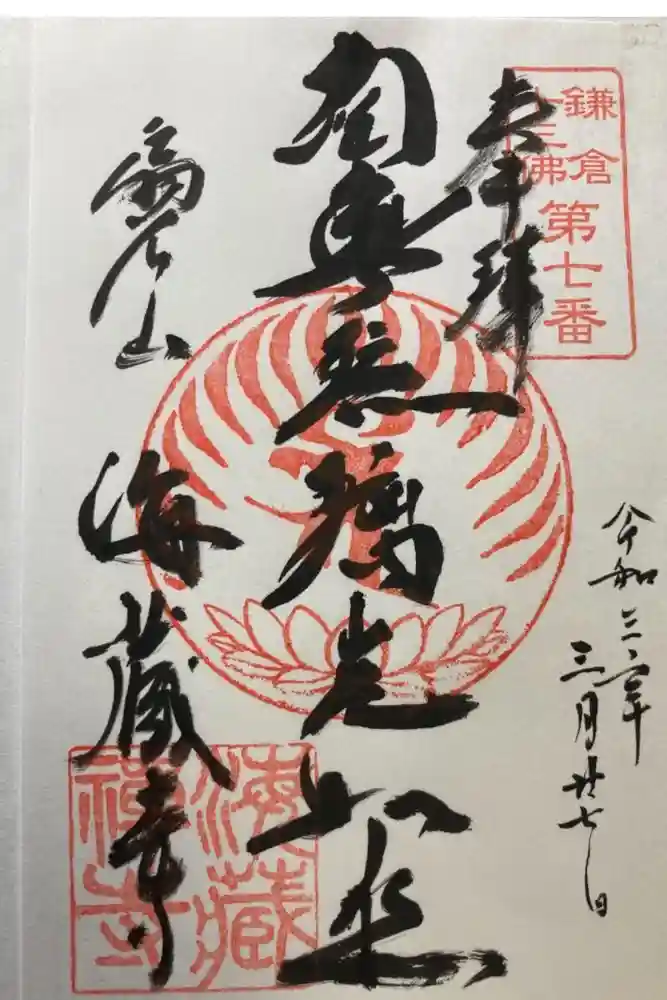 鎌倉
十三佛
第七番
奉拝
令和三年
三月廿七日
南無瑠璃光如来
扇谷山
海蔵寺
海藏
禅寺